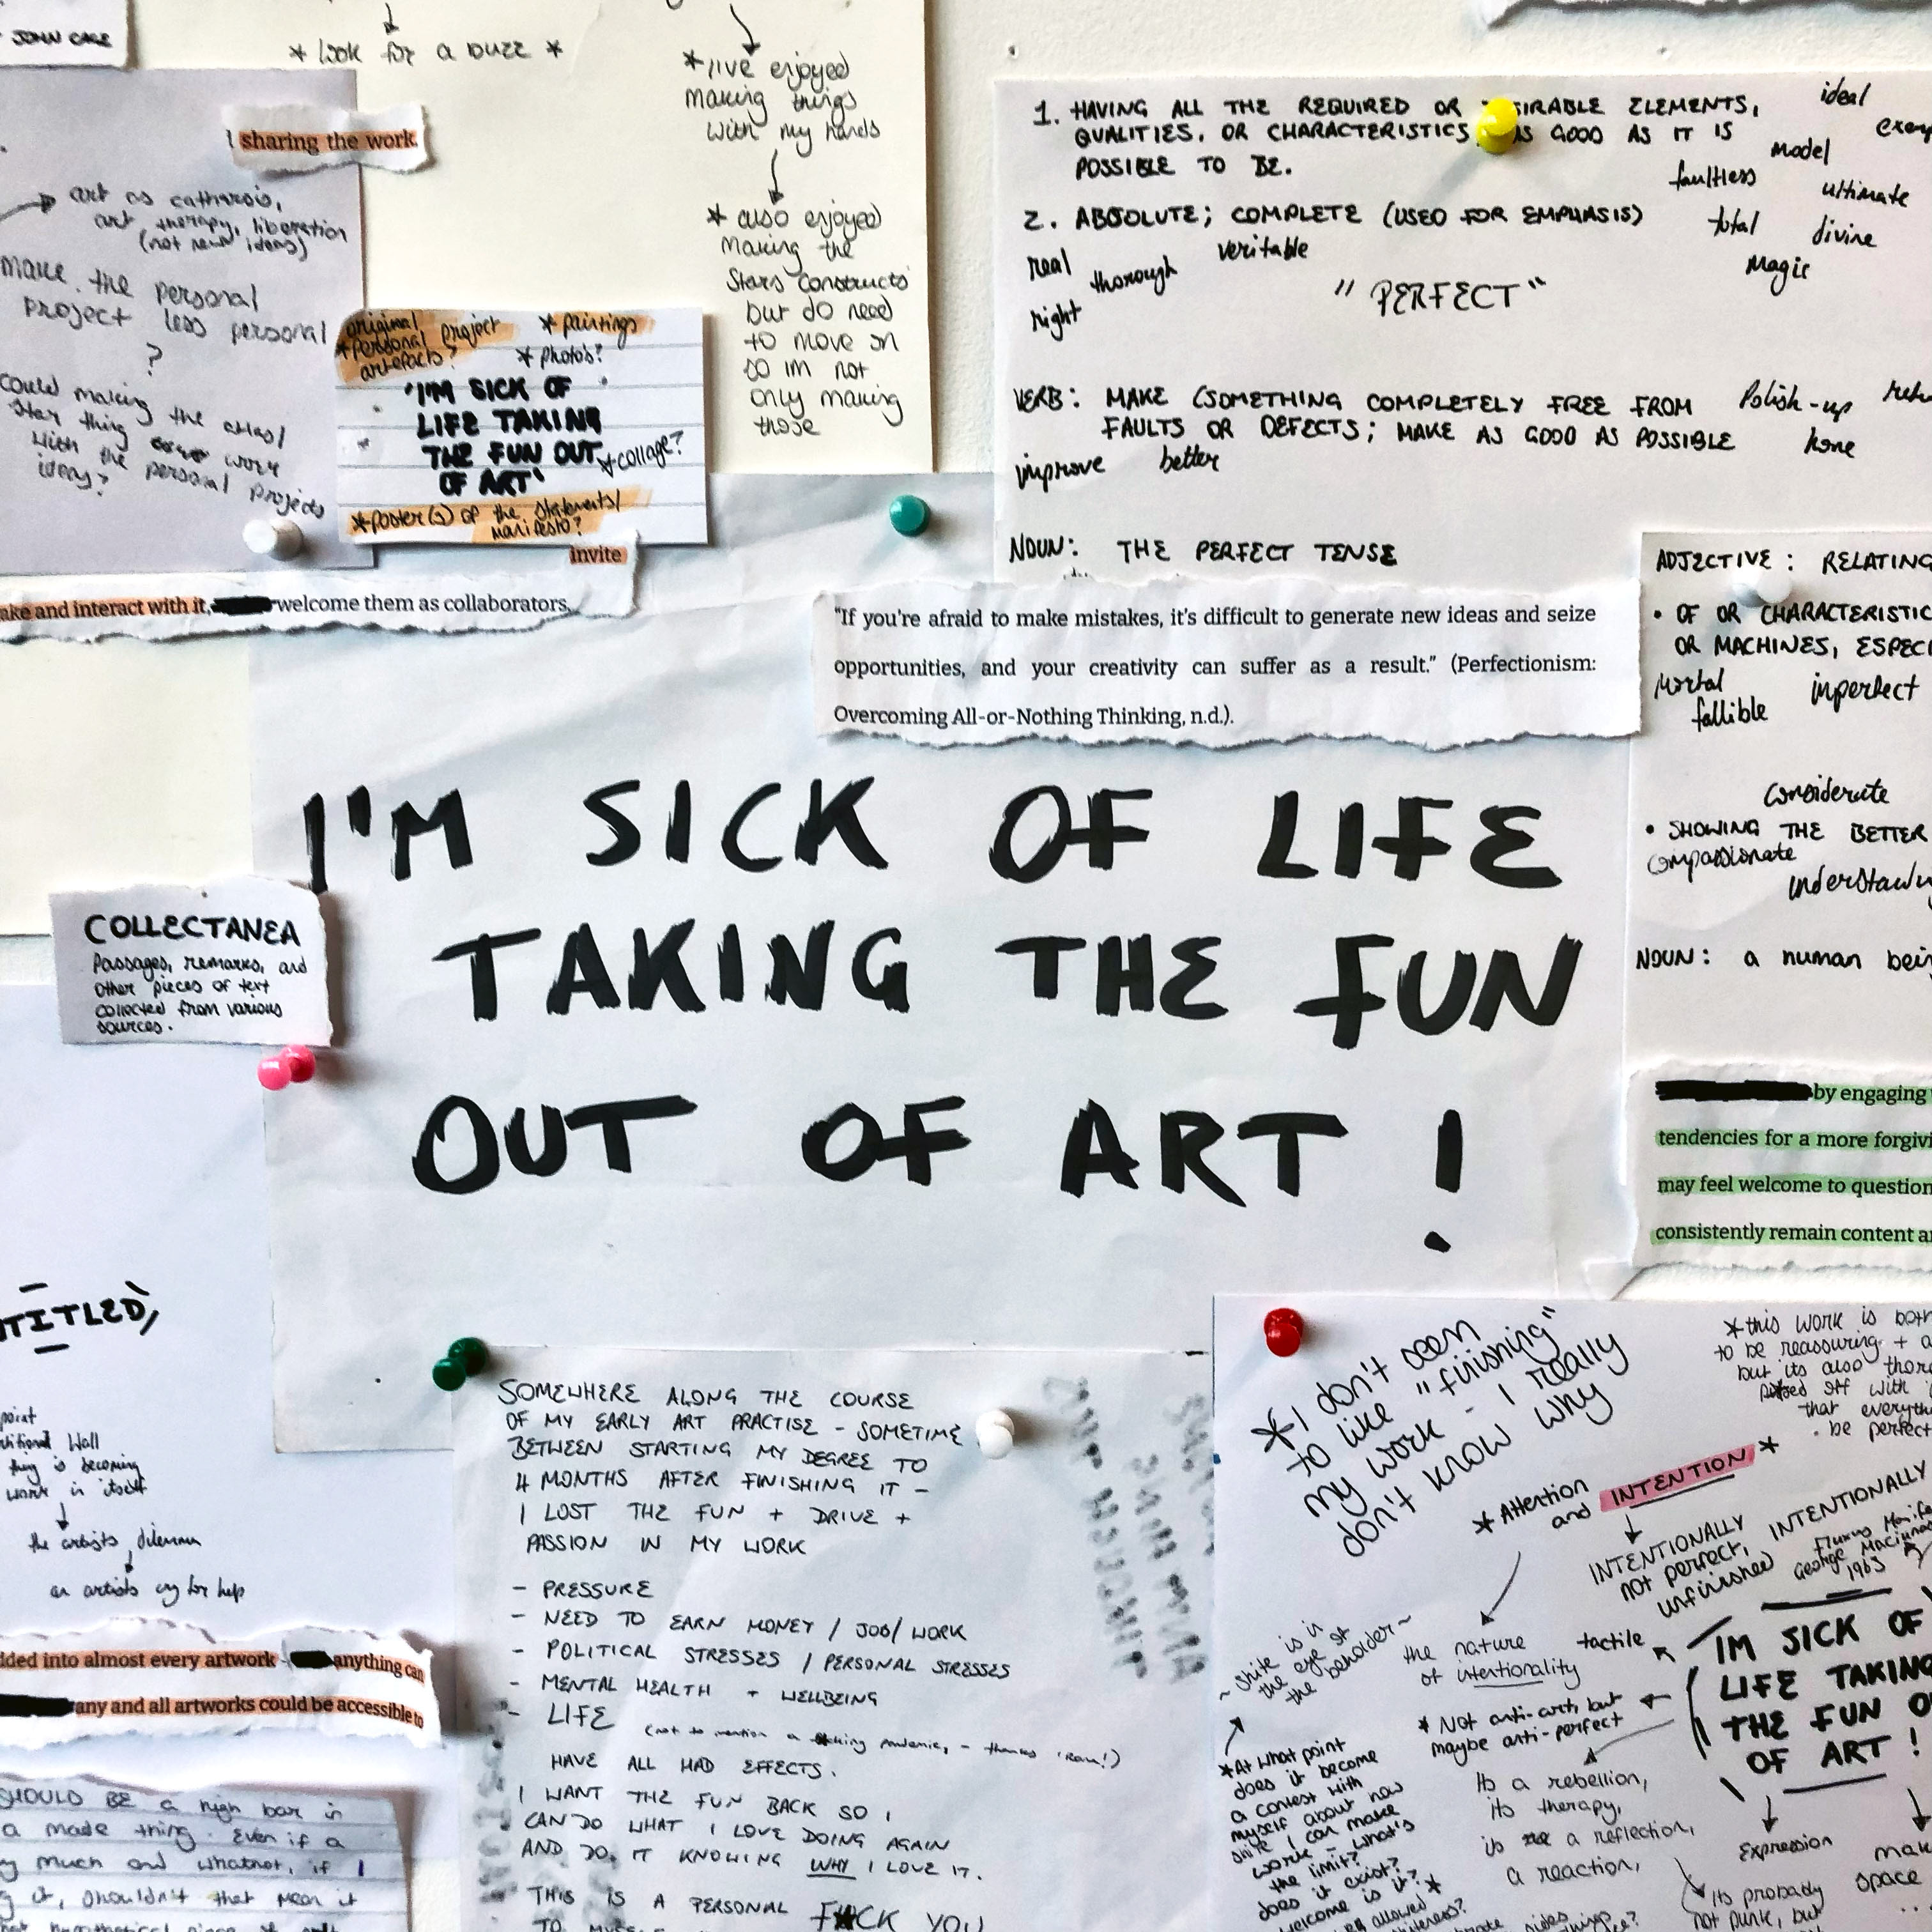 JOHN CAGE
* look for a buzz *
*I've enjoyed
making things
with my hands
* also enjoyed
making the
stars constructs
but do need
to move on
so im not
only making
those
sharing the work
art as catharsis,
art therapy, liberation
(not new ideas)
make the personal
project less personal
?
could making the atlas/
star thing work
with the personal projects
ideas?
original
*personal project
artefacts?
* paintings
* photo's?
'I'M SICK OF
LIFE TAKING
THE FUN OUT
OF ART'
*collage?
*poster(s) of the statements/
manifesto?
invite
ake and interact with it, welcome them as collaborators.
1. HAVING ALL THE REQUIRED OR IRABLE ELEMENTS,
QUALITIES, OR CHARACTERISTICS; AS GOOD AS IT IS
POSSIBLE TO BE.
ideal
model
faultless
ultimate
2. ABSOLUTE; COMPLETE (USED FOR EMPHASIS)
total
divine
magic
real
thorough
veritable
right
"PERFECT"
VERB: MAKE (SOMETHING COMPLETELY FREE FROM
FAULTS OR DEFECTS; MAKE AS GOOD AS POSSIBLE
Polish-up
hone
improve
better
NOUN: THE PERFECT TENSE
"If you're afraid to make mistakes, it's difficult to generate new ideas and seize
opportunities, and your creativity can suffer as a result." (Perfectionism:
Overcoming All-or-Nothing Thinking, n.d.).
ADJECTIVE: RELATING
• OF OR CHARACTERISTIC
OR MACHINES, ESPECI
mortal
imperfect
fallible
considerate
• SHOWING THE BETTER
compassionate
understandin
NOUN: a human bein
I'M SICK OF LIFE
TAKING THE FUN
OUT OF ART!
COLLECTANEA
Passages, remarks, and
other pieces of text
collected from various
sources.
by engaging
tendencies for a more forgivi
may feel welcome to question
consistently remain content a
TITLED,
point
Wall
thing is becoming
work in itself
the artists dilemma
an artists cry for help
dded into almost every artwork - anything can
any and all artworks could be accessible to
SHOULD BE a high bar in
a made thing. Even if a
much and whatnot, if I
it, shouldn't that mean it
SOMEWHERE ALONG THE COURSE
OF MY EARLY ART PRACTISE - SOMETIME
BETWEEN STARTING MY DEGREE TO
4 MONTHS AFTER FINISHING IT -
I LOST THE FUN + DRIVE +
PASSION IN MY WORK
- PRESSURE
- NEED TO EARN MONEY / JOB/ WORK
- POLITICAL STRESSES / PERSONAL STRESSES
- MENTAL HEALTH + WELLBEING
- LIFE
(not to mention a f*cking pandemic, - thanks
HAVE ALL HAD EFFECTS.
I WANT THE FUN BACK SO I
CAN DO WHAT I LOVE DOING AGAIN
AND DO IT KNOWING WHY I LOVE IT.
THIS IS A PERSONAL F*CK YOU
TO
*I don't seem
to like "finishing"
my work - I really
don't know why
*this work is both
to be reassuring + a
but its also
off with
that everyth
be perfect
*Attention
and INTENTION *
INTENTIONALLY
not perfect,
unfinished
INTENTIONALLY
Fluxus Manife
George Maciunas
1963
~ shite is in
the eye of
the beholder ~
the nature
of intentionality
tactile
IM SICK OF
LIFE TAKING
THE FUN O
OF ART!
* Not anti-art, but
maybe anti-perfect
Its a rebellion,
its therapy,
is a reflection,
a reaction,
*At what point
does it become
a contest with
myself about how
shite I can make
work - what's
the limit?
does it exist?
welcome is it? *
Expression
mak
space
Its probably
not punk, but